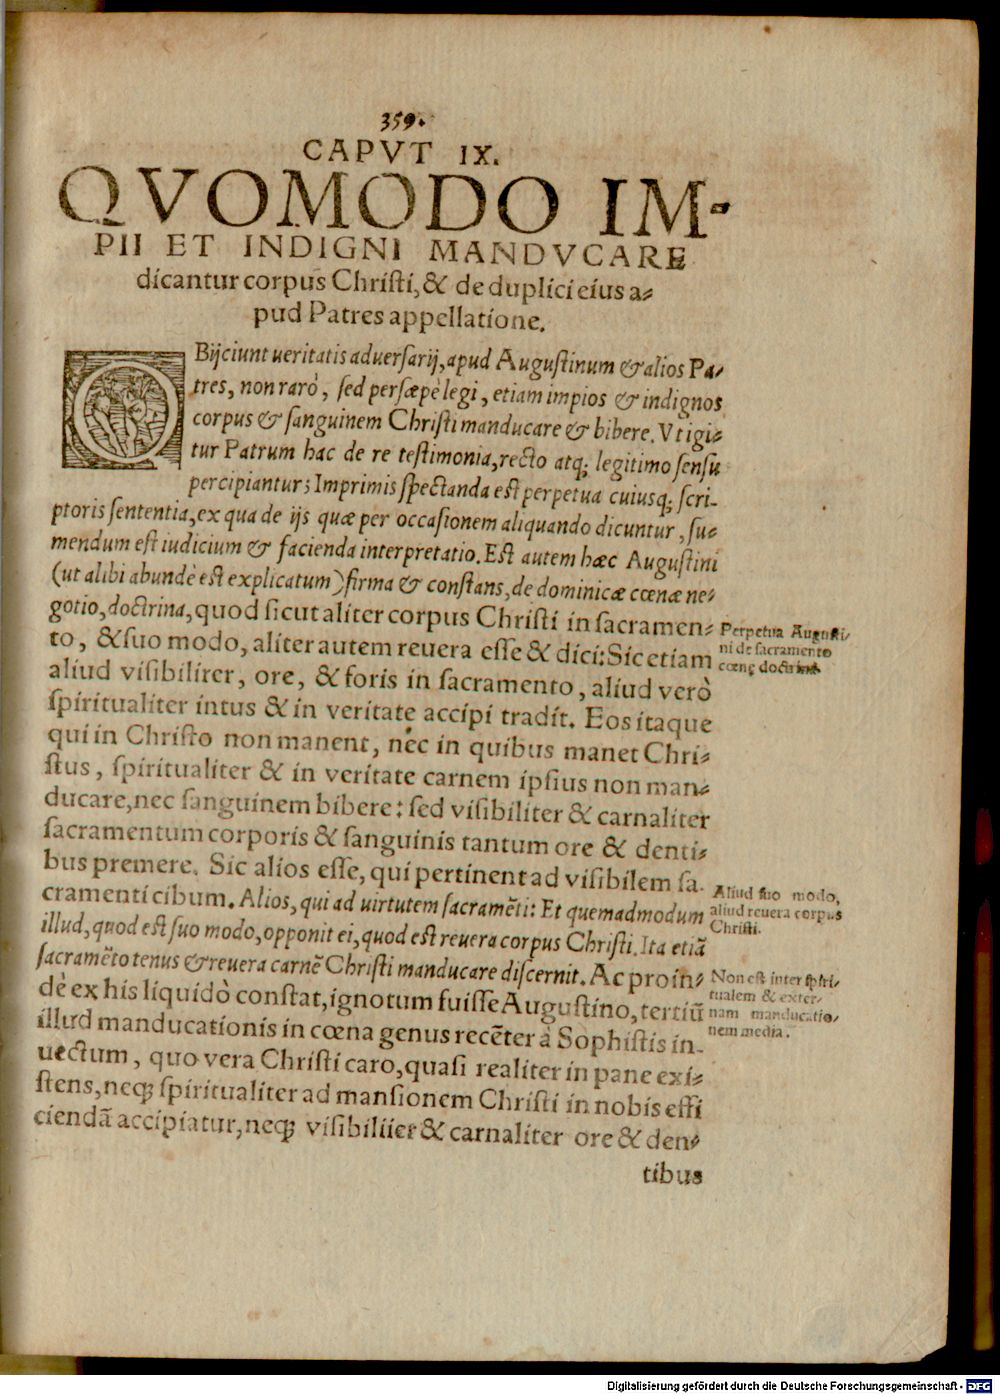 359.
CAPVT IX.
QVOMODO IM-
PII ET INDIGNI MANDVCARE
dicantur corpus Christi, & de duplici eius a-
pud Patres appellatione.
OBijciunt ueritatis aduersarij, apud Augustinum & alios Pa-
tres, non rarò, sed persæpè legi, etiam impios & indignos
corpus & sanguinem Christi manducare & bibere. Vt igi-
tur Patrum hac de re testimonia, recto atq; legitimo sensu
percipiantur; Imprimis spectanda est perpetua cuiusq; scri-
ptoris sententia, ex qua de ijs quæ per occasionem aliquando dicuntur, su-
mendum est iudicium & facienda interpretatio. Est autem hæc Augustini
(ut alibi abundè est explicatum) firma & constans, de dominicæ cœnæ ne-
gotio, doctrina, quod sicut aliter corpus Christi in sacramen-
to, & suo modo, aliter autem reuera esse & dici: Sic etiam
aliud visibilirer, ore, & foris in sacramento, aliud verò
spiritualiter intus & in veritate accipi tradit. Eos itaque
qui in Christo non manent, nec in quibus manet Chri-
stus, spiritualiter & in veritate carnem ipsius non man-
ducare, nec sanguinem bibere: sed visibiliter & carnaliter
sacramentum corporis & sanguinis tantum ore & denti-
bus premere. Sic alios esse, qui pertinent ad visibilem sa-
cramenti cibum. Alios, qui ad uirtutem sacramēti: Et quemadmodum
illud, quod est suo modo, opponit ei, quod est reuera corpus Christi. Ita etiā
sacramēto tenus & reuera carnē Christi manducare discernit. Ac proin-
dè ex his liquidò constat, ignotum fuisse Augustino, tertiū
illud manducationis in cœna genus recēter à Sophistis in-
uectum, quo vera Christi caro, quasi realiter in pane exi-
stens, neq; spiritualiter ad mansionem Christi in nobis effi
ciendā accipiatur, neq; visibiliier & carnaliter ore & den-
tibus
Perpetua Augusti-
ni de sacramento
cœnę doctrina.
Aliud suo modo,
aliud reuera corpus
Christi.
Non est inter spiri-
tualem & exter-
nam manducatio-
nem media.
Digitalisierung gefördert durch die Deutsche Forschungsgemeinschaft - DFG